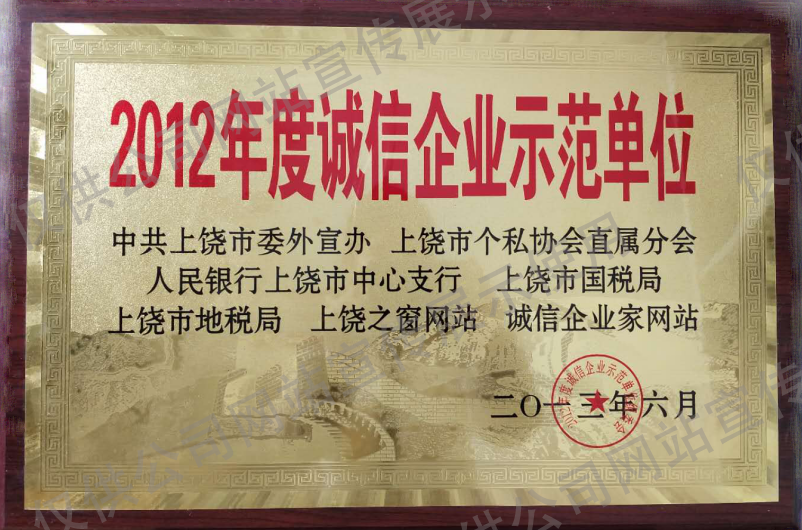 2012年度诚信企业示范单位
中共上饶市委外宣办 上饶市个私协会直属分会
人民银行上饶市中心支行 上饶市国税局
上饶市地税局 上饶之窗网站 诚信企业家网站
二〇一三年六月
仅供公司网站宣传展示使用